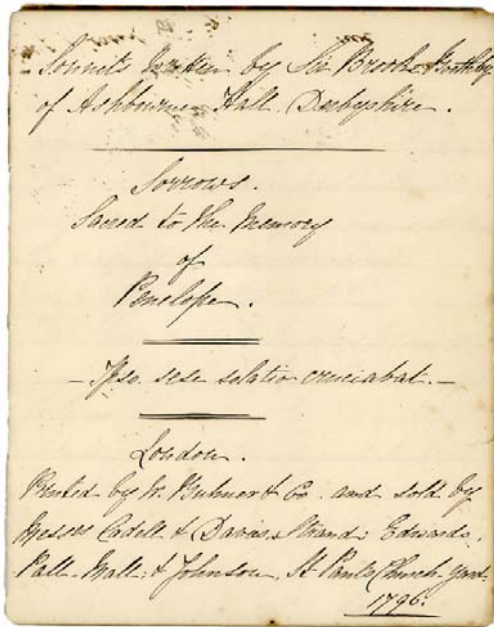 Sonnets written by Sir Brooke Boothby
of Ashbourne Hall Derbyshire.
Sorrows.
Sacred to the Memory
of
Penelope.
- Ipso sese solatio cruciabat. -
London.
Printed by W. Bulmer & Co. and sold by
Messrs Cadell & Davies, Strand: Edwards,
Pall-Mall: & Johnson, St Pauls Church-Yard.
1796.